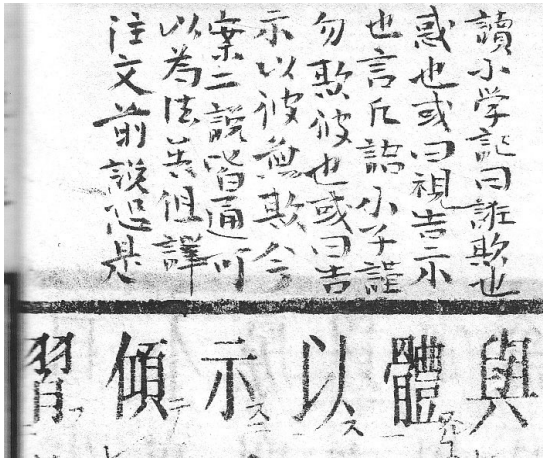 讀小学記曰誑欺也
惑也或曰視告示
也言凡語小子謹
勿欺彼也或曰告
示以彼無欺今
案二說皆通可
以為法矣但詳
注文前說恐是
與
體
以ス
示ス
傾テ
習フ